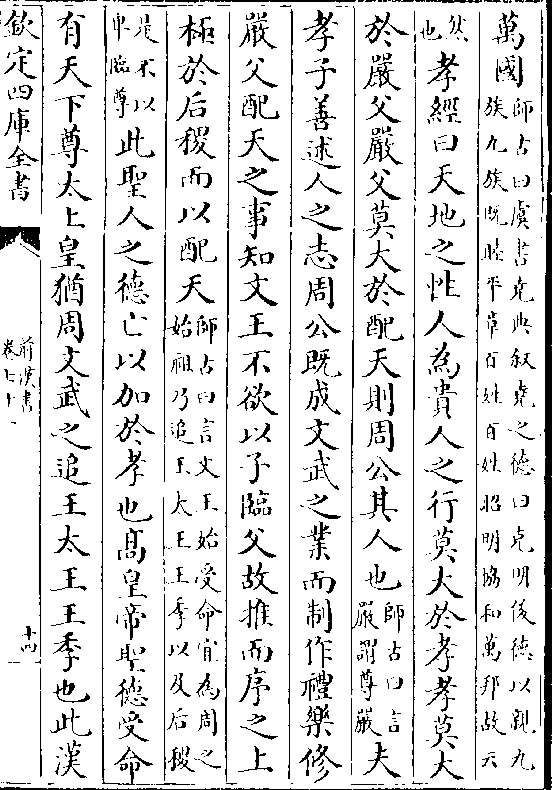 萬國師古曰虞書堯典叙堯之德曰克明俊德以親九族九族既睦平章百姓百姓昭明協和萬邦故云
然也孝經曰天地之性人為貴人之行莫大於孝孝莫大
於嚴父嚴父莫大於配天則周公其人也師古曰言嚴謂尊嚴夫
孝子善述人之志周公既成文武之業而制作禮樂修
嚴父配天之事知文王不欲以子臨父故推而序之上
極於后稷而以配天師古曰言文王始受命宜為周之始祖乃追王太王王季以及后稷
是不以卑臨尊此聖人之德亡以加於孝也髙皇帝聖德受命
有天下尊太上皇猶周文武之追王太王王季也此漢
欽定四庫全書
前漢書
卷七十
十四